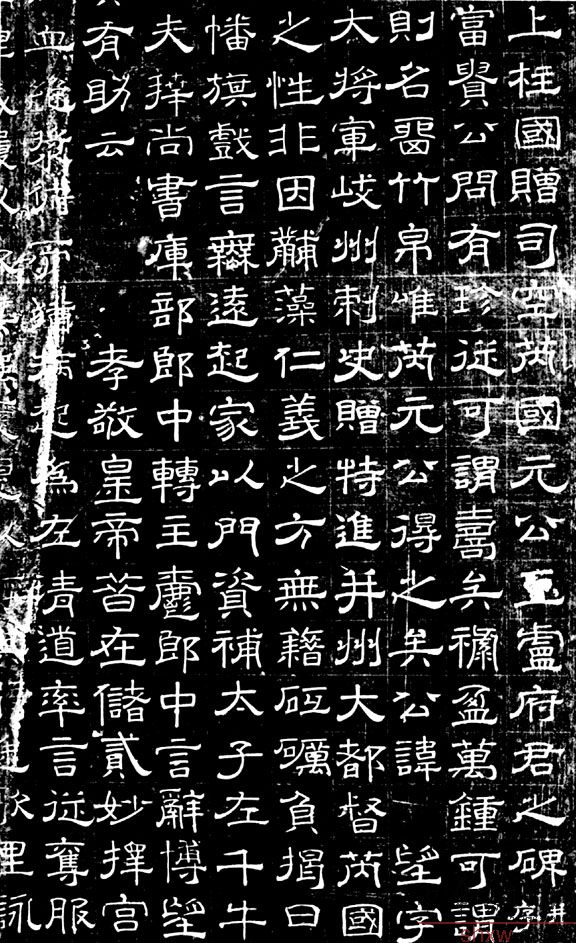 上柱國贈司空芮國元公豆盧府君之碑并序
富貴公問有珍從可謂壽矣祿盈萬鍾可謂
則名留竹帛唯芮元公得之矣公諱望字
大將軍岐州刺史贈特進并州大都督芮國
之性非因黼藻仁義之方無籍砥礪負揭日
幡旗戲言無遠起家以門資補太子左千牛
夫拜尚書庫部郎中轉主爵郎中言辭博望
有助云孝敬皇帝昔在儲貳妙擇宮
血起為左清道率言從奪服
里詠